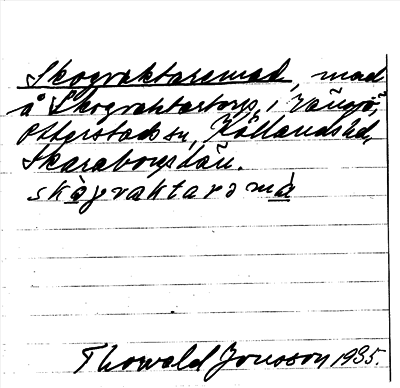 Skogvaktaremad, mad
å Skogvaktartorp, i
Otterstads sn, Kållands hd,
Skaraborgs län.
skògvaktarə mà
Thorvald Jonsson 1935